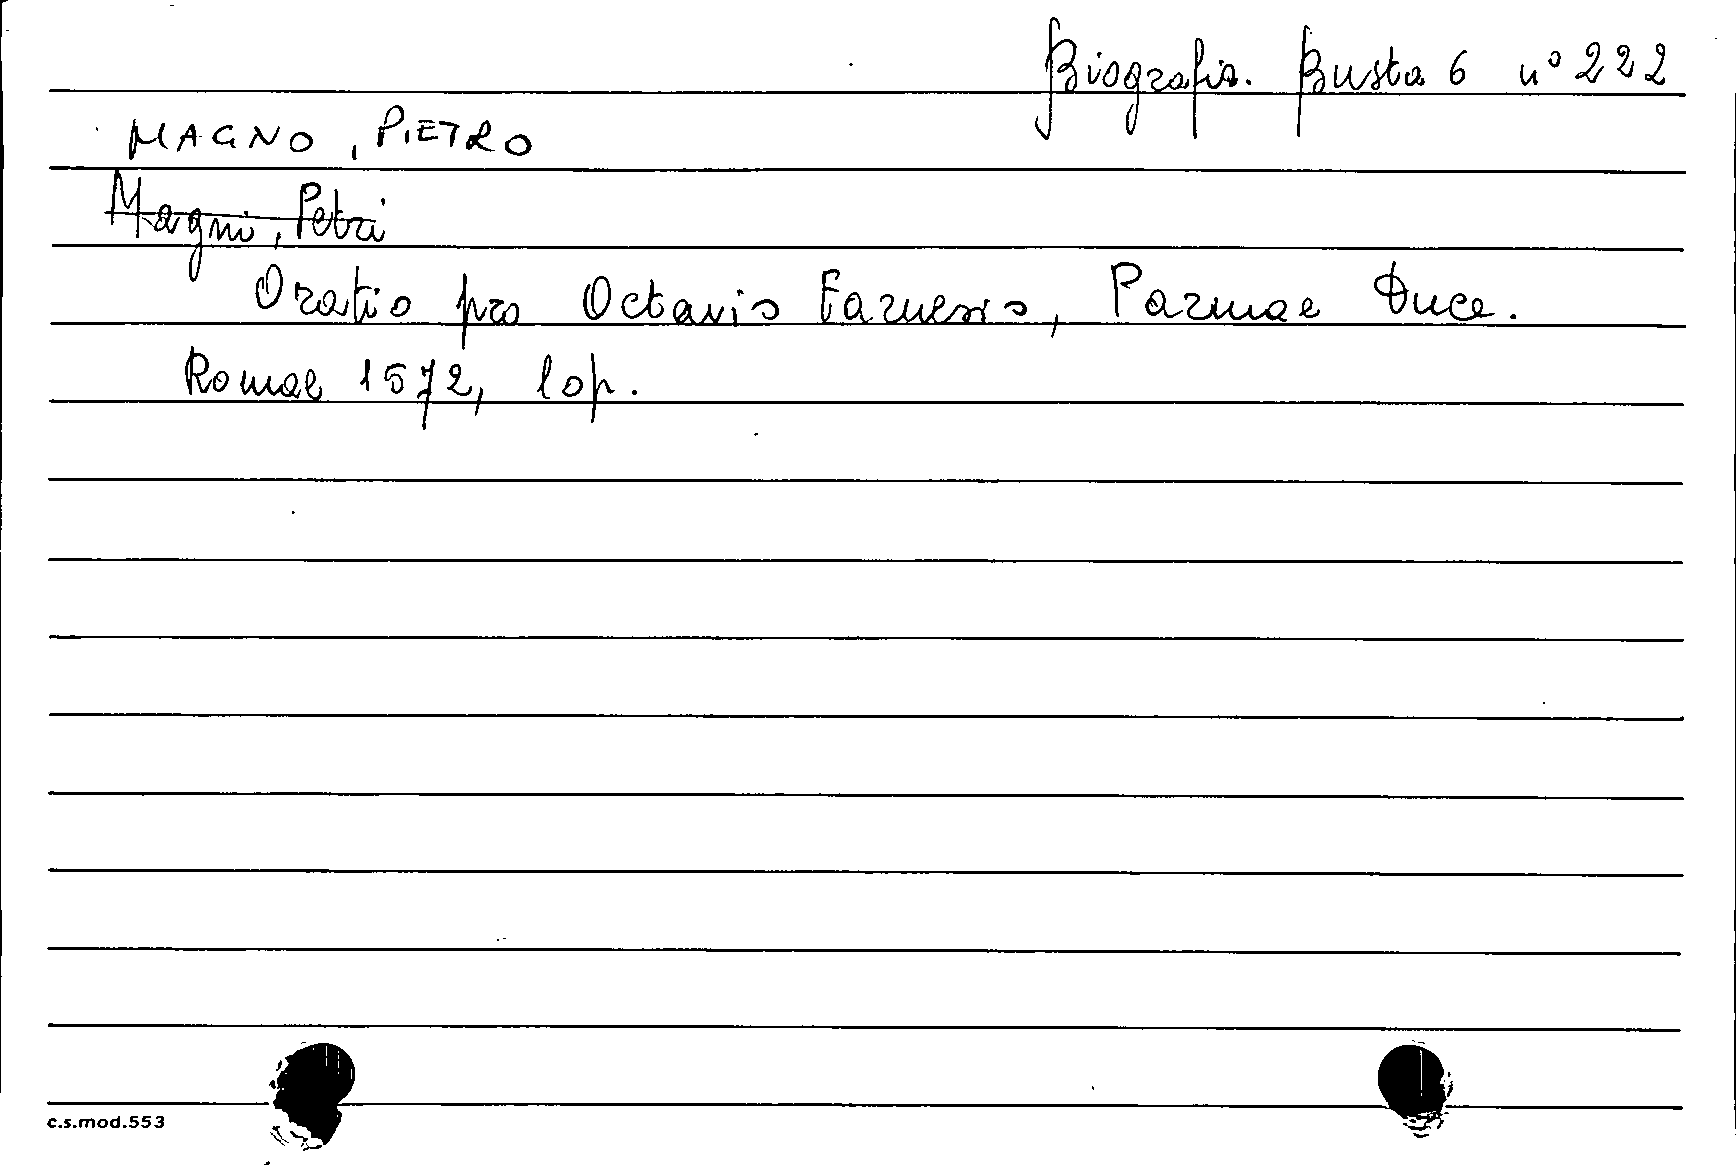 Biografia. Busta 6 n° 222
MAGNO, PIETRO
Magni, Petri
Oratio pro Octavio Farnesio, Parmae Duce.
Romae 1572, lop.
c.s.mod.553